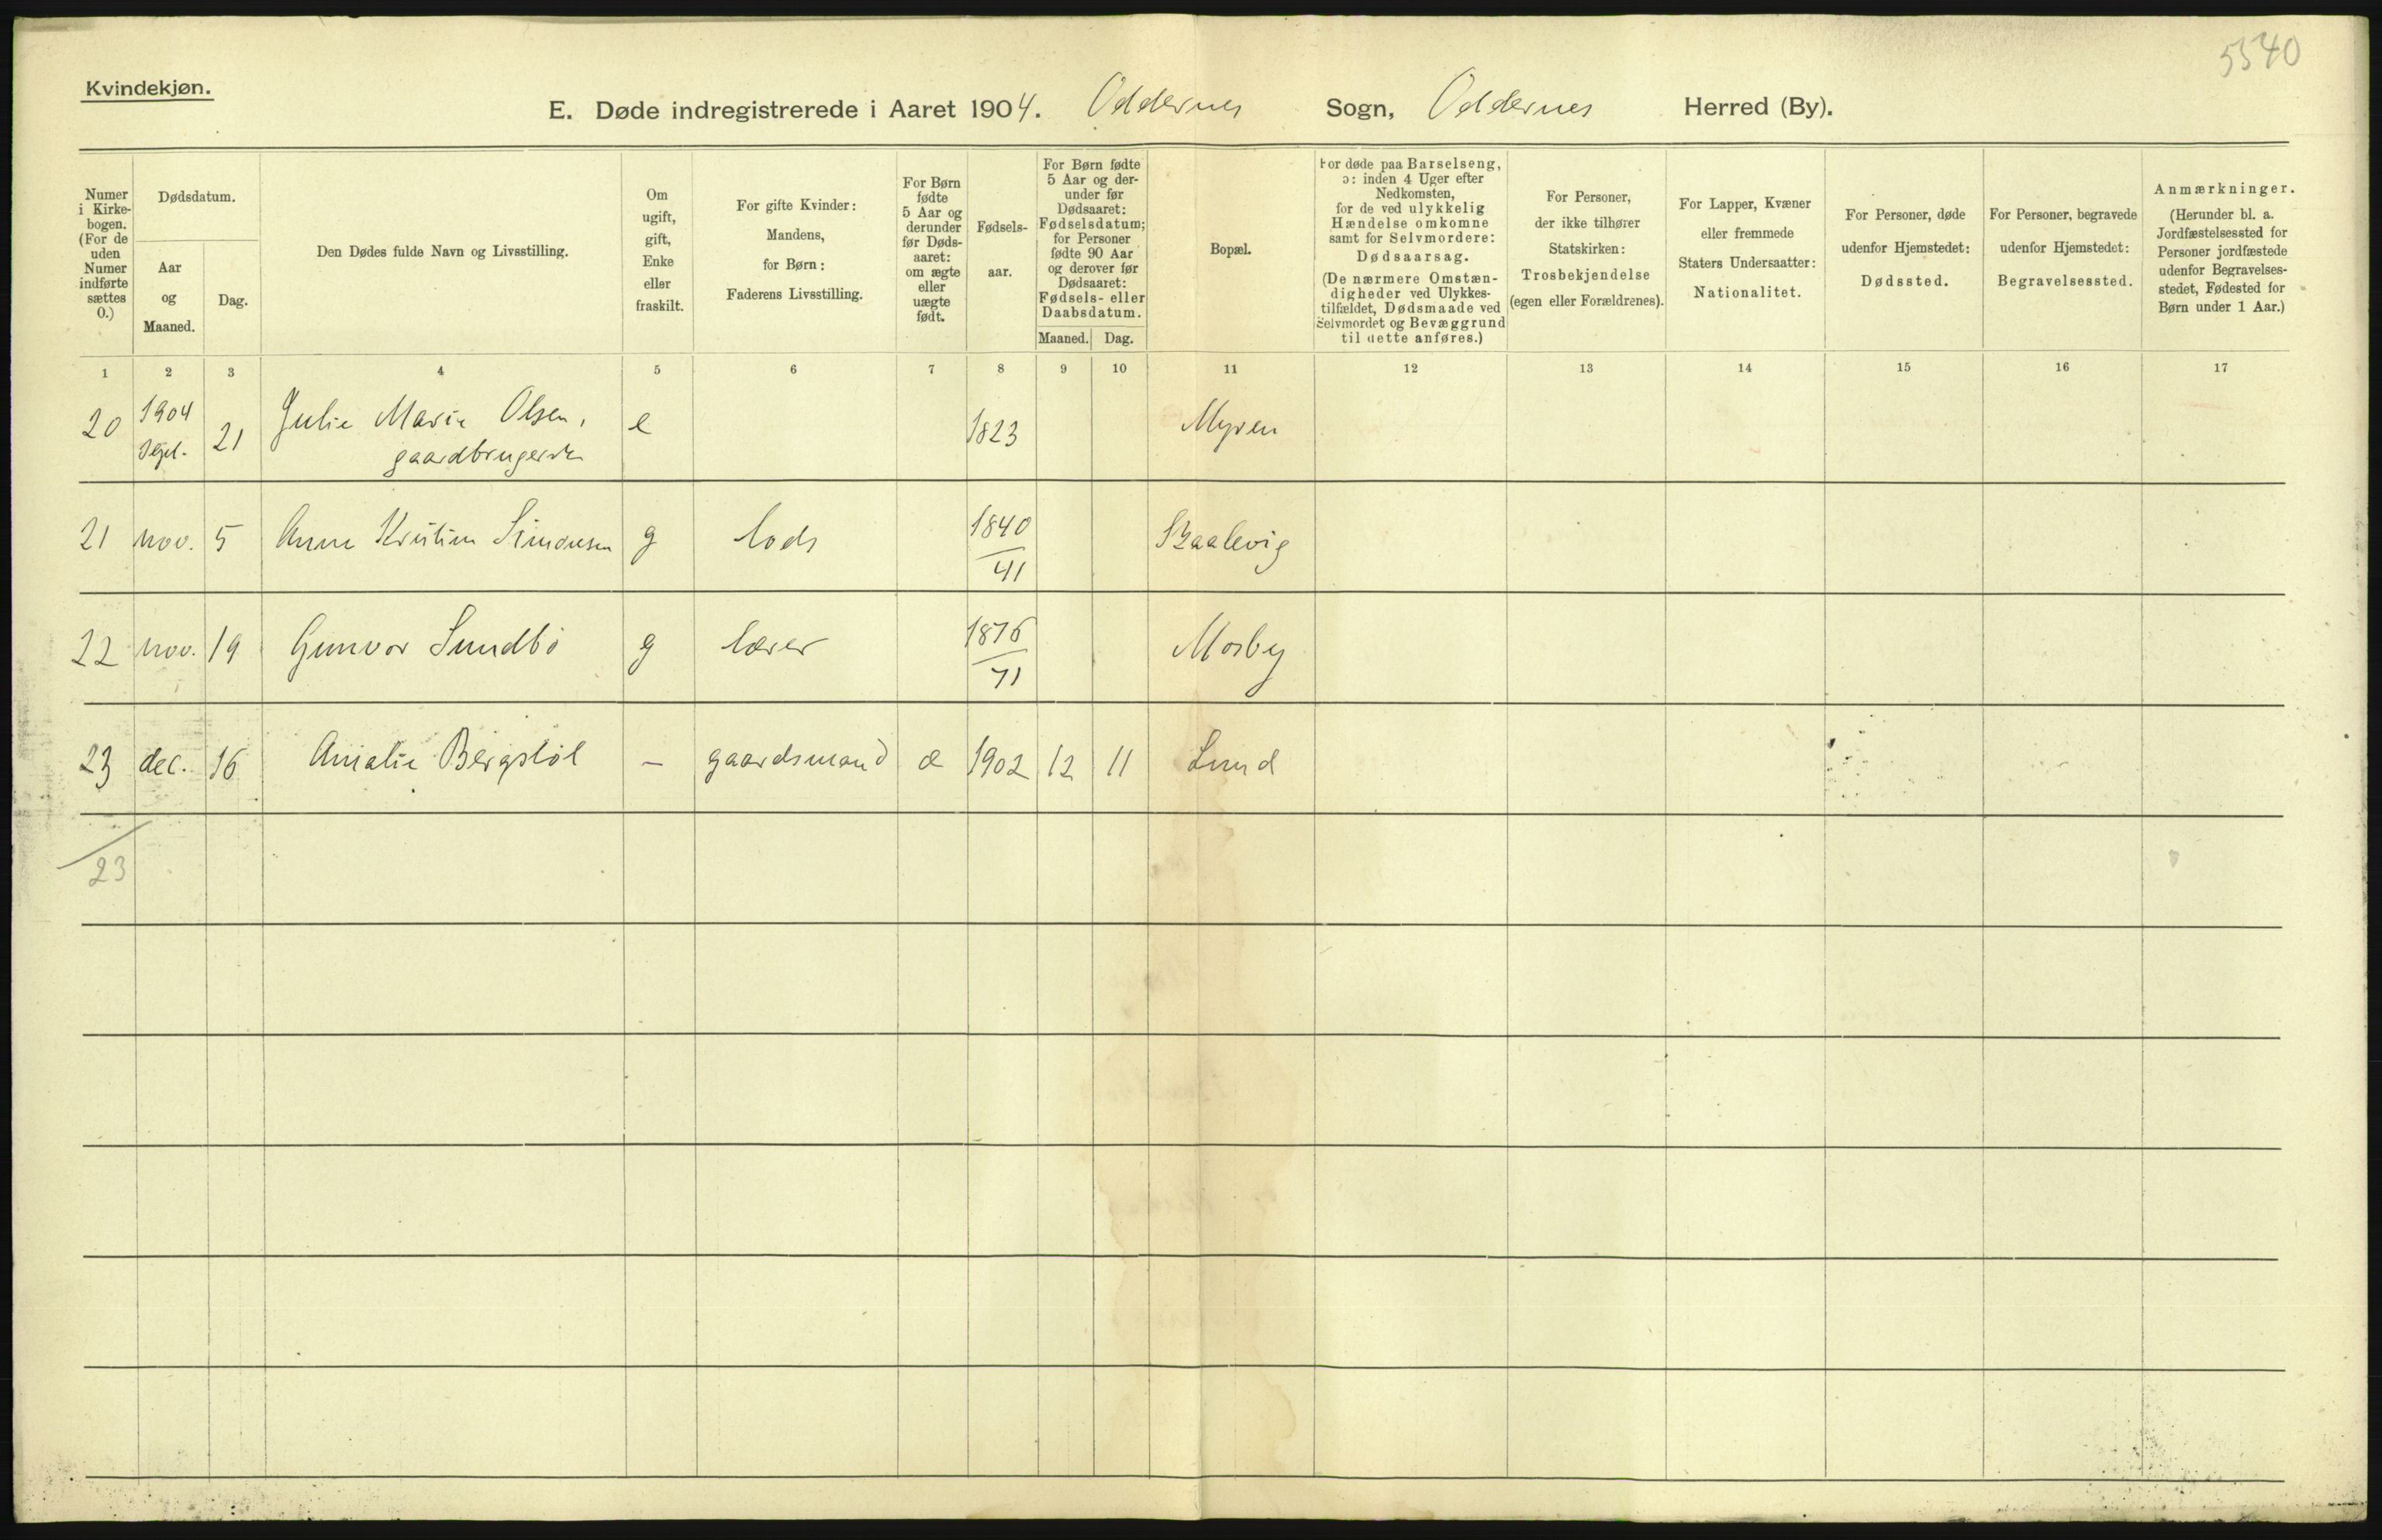 5540
Kvindekjøn.
E. Døde indregistrerede i Aaret 1904. Oddernes Sogn, Oddernes Herred (By).
Numer i Kirkebogen. (For de uden Numer indførte sættes 0.)
Dødsdatum.
Aar og Maaned.
Dag.
Den Dødes fulde Navn og Livsstilling.
Om ugift, gift, Enke eller fraskilt.
For gifte Kvinder: Mandens, for Børn: Faderens Livsstilling.
For Børn fødte 5 Aar og derunder før Dødsaaret: om ægte eller uægte født.
Fødselsaar.
For Børn fødte 5 Aar og derunder før Dødsaaret: Fødselsdatum; for Personer fødte 90 Aar og derover før Dødsaaret: Fødsels- eller Daabsdatum.
Maaned. Dag.
Bopæl.
For døde paa Barselseng, ɔ: inden 4 Uger efter Nedkomsten, for de ved ulykkelig Hændelse omkomne samt for Selvmordere: Dødsaarsag.
(De nærmere Omstændigheder ved Ulykkestilfældet, Dødsmaade ved Selvmordet og Bevæggrund til dette anføres.)
For Personer, der ikke tilhører Statskirken: Trosbekjendelse (egen eller Forældrenes).
For Lapper, Kvæner eller fremmede Staters Undersaatter: Nationalitet.
For Personer, døde udenfor Hjemstedet: Dødssted.
For Personer, begravede udenfor Hjemstedet: Begravelsessted.
Anmærkninger.
(Herunder bl. a. Jordfæstelsessted for Personer jordfæstede udenfor Begravelsesstedet, Fødested for Børn under 1 Aar.)
1 2 3 4 5 6 7 8 9 10 11 12 13 14 15 16 17
20 1904 Sept. 21 Julie Marie Olsen, e 1823 Myren
gaardbrugerske
21 nov. 5 Anne Kristine Simonsen g lods 1840/41 Skaalevig
22 nov. 19 Gunvor Sundbö g lærer 1876/71 Mosby
23 dec. 16 Amalie Bergstöl – gaardsmand æ 1902 12 11 Lund
23